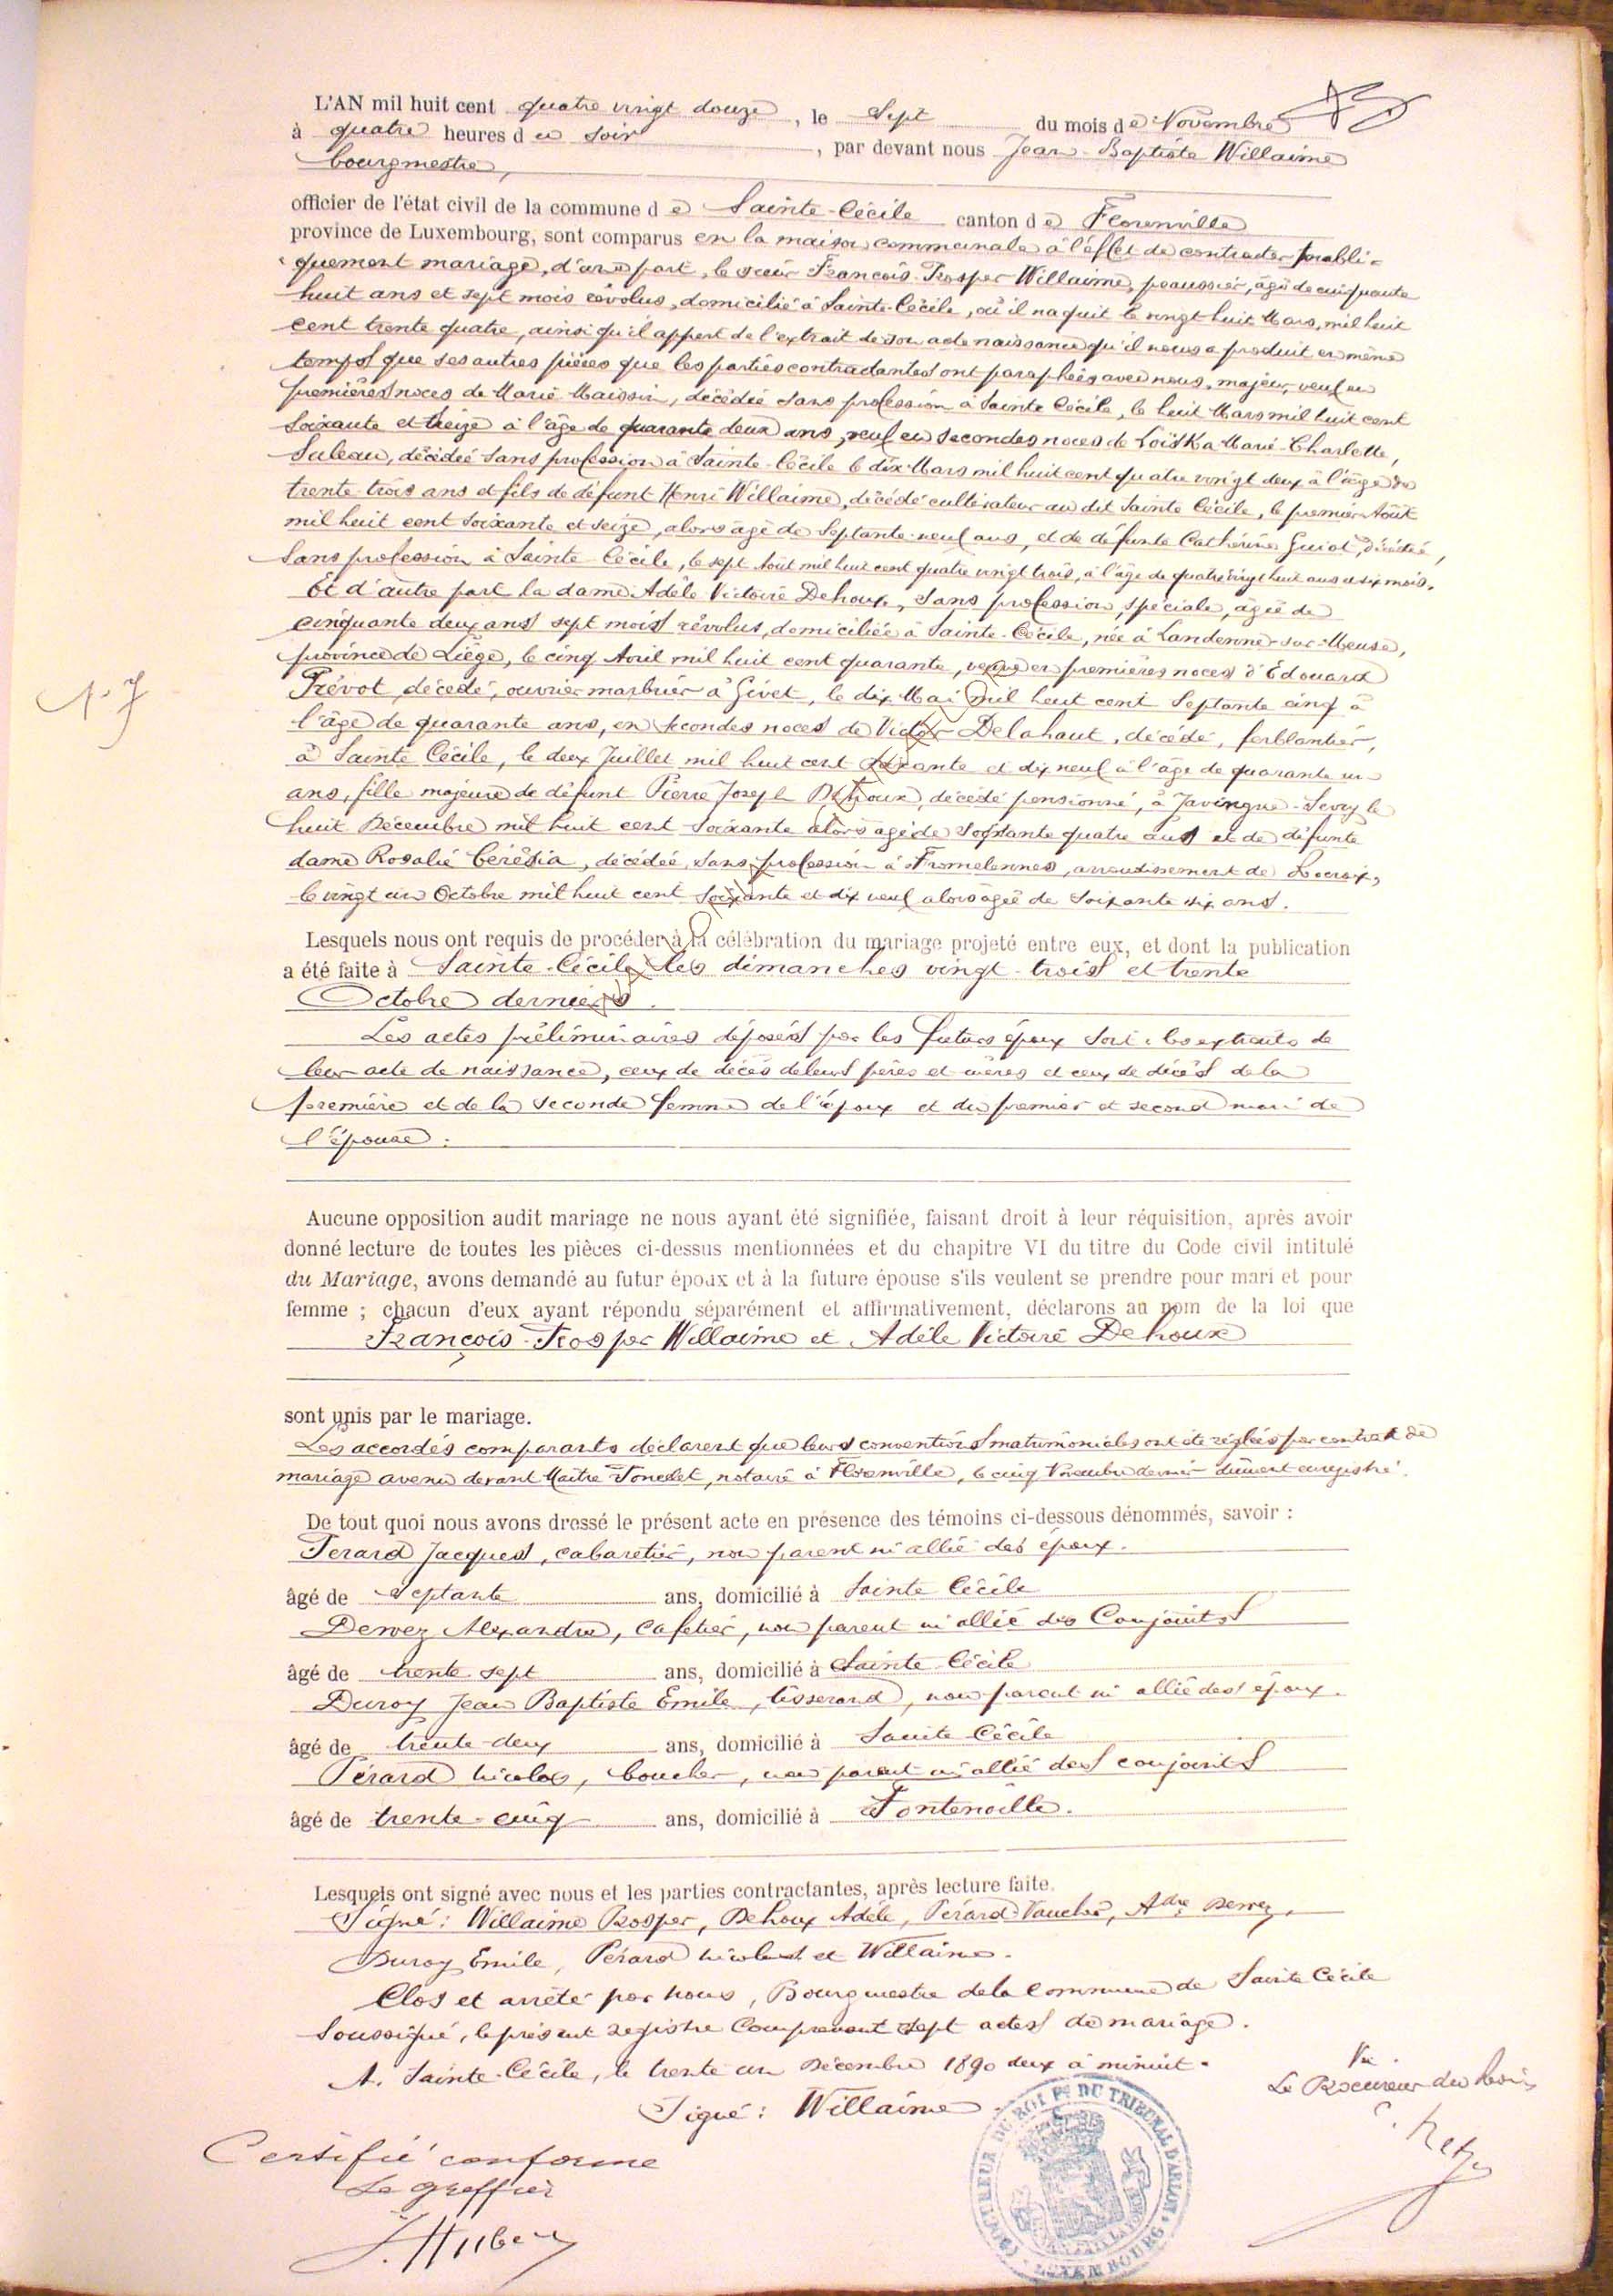 L'AN mil huit cent quatre vingt douze, le Sept du mois de Novembre
à quatre heures d u soir, par devant nous Jean-Baptiste Willaime
bourgmestre,
officier de l'état civil de la commune d e Sainte-Cécile canton d e Florenville
province de Luxembourg, sont comparus en la maison communale à l'effet de contracter publi-
quement mariage, d'une part, le sieur François-Prosper Willaime, peaussier, âgé de cinquante
huit ans et sept mois révolus, domicilié à Sainte-Cécile, où il naquit le vingt huit Mars, mil huit
cent trente quatre, ainsi qu'il appert de l'extrait de son acte naissance qu'il nous a produit en même
temps que ses autres pièces que les parties contractantes ont paraphées avec nous, majeur, veuf en
premières noces de Marie Maissin, décédée sans profession à Sainte Cécile, le huit Mars mil huit cent
soixante et treize à l'âge de quarante deux ans, veuf en secondes noces de Loïska-Marie-Charlotte,
Saleau, décédée sans profession à Sainte-Cécile le dix Mars mil huit cent quatre vingt deux à l'âge de
trente trois ans et fils de défunt Henri Willaime, décédé cultivateur au dit Sainte Cécile, le premier Août
mil huit cent soixante et seize, alors âgé de Septante-neuf ans, et de défunte Catherine Guiot, décédée,
sans profession à Sainte-Cécile, le sept Août mil huit cent quatre vingt trois, à l'âge de quatre vingt huit ans et six mois.
Et d'autre part la dame Adèle Victoire Dehoux, sans profession, spéciale, âgée de
cinquante deux ans sept mois révolus, domiciliée à Sainte-Cécile, née à Landenne-sur-Meuse,
province de Liège, le cinq Avril mil huit cent quarante, veuve en premières noces d'Edouard
Prévot, décédé, ouvrier marbrier à Givet, le dix Mai mil huit cent Septante cinq à
l'âge de quarante ans, en secondes noces de Victor Delahaut, décédé, ferblantier,
à Sainte Cécile, le deux Juillet mil huit cent soixante et dix neuf à l'âge de quarante un
ans, fille majeure de défunt Pierre Joseph Dehoux, décédé pensionné, à Javingue-Sevry le
huit Décembre mil huit cent soixante alors âgé de soixante quatre ans et de défunte
dame Rosalie Cérésia, décédée, sans profession à Fromelennes, arrondissement de Rocroix,
le vingt un Octobre mil huit cent soixante et dix neuf alors âgée de soixante six ans.
N. 7
Lesquels nous ont requis de procéder à la célébration du mariage projeté entre eux, et dont la publication
a été faite à Sainte-Cécile les dimanches vingt-trois et trente
Octobre derniers.
Les actes préliminaires déposés par les futurs époux sont: les extraits de
leur acte de naissance, ceux de décès de leurs pères et mères et ceux de décès de la
première et de la seconde femme de l'époux et du premier et second mari de
l'épouse.
Aucune opposition audit mariage ne nous ayant été signifiée, faisant droit à leur réquisition, après avoir
donné lecture de toutes les pièces ci-dessus mentionnées et du chapitre VI du titre du Code civil intitulé
du Mariage, avons demandé au futur époux et à la future épouse s'ils veulent se prendre pour mari et pour
femme ; chacun d'eux ayant répondu séparément et affirmativement, déclarons au nom de la loi que
François-Prosper Willaime et Adèle Victoire Dehoux
sont unis par le mariage.
Les accordés comparants déclarent que leurs conventions matrimoniales ont été réglées par contrat de
mariage avenu devant Maître notaire à Florenville, le cinq Novembre dernier dûment enregistré.
De tout quoi nous avons dressé le présent acte en présence des témoins ci-dessous dénommés, savoir :
Perard Jacques, cabaretier, non parent ni allié des époux.
âgé de Septante ans, domicilié à Sainte Cécile
Dervez Alexandre, Cafetier, non parent ni allié des Conjoints
âgé de trente sept ans, domicilié à Sainte Cécile
Duroy Jean Baptiste Emile, tisserand, non parent ni allié des époux.
âgé de trente-deux ans, domicilié à Sainte-Cécile
Pérard Nicolas, boucher, non parent ni allié des conjoints
âgé de trente-cinq ans, domicilié à Fontenoille.
Lesquels ont signé avec nous et les parties contractantes, après lecture faite.
Signé : Willaime Prosper, Dehoux Adèle, Pérard-Vaucher, Adre Dervez,
Duroy Emile, Pérard Nicolas et Willaime.
Clos et arrêté par nous, Bourgmestre de la Commune de Sainte Cécile
Soussigné, le présent registre Comprenant Sept actes de mariage.
A. Sainte-Cécile, le trente un Décembre 1890 deux à minuit.
Signé : Willaime
Vu.
Le Procureur du Roi,
Certifié conforme
Le greffier
PROCUREUR DU ROI PS DU TRIBUNAL D'ARLON
LUXEMBOURG